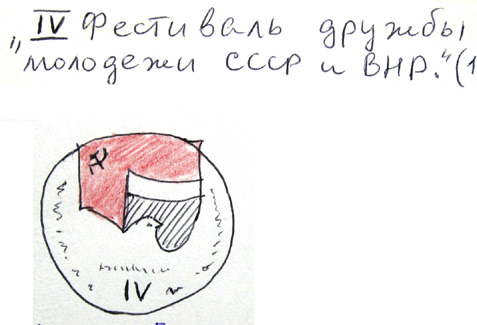 „IV Фестиваль дружбы
молодежи СССР и ВНР.“(1
IV